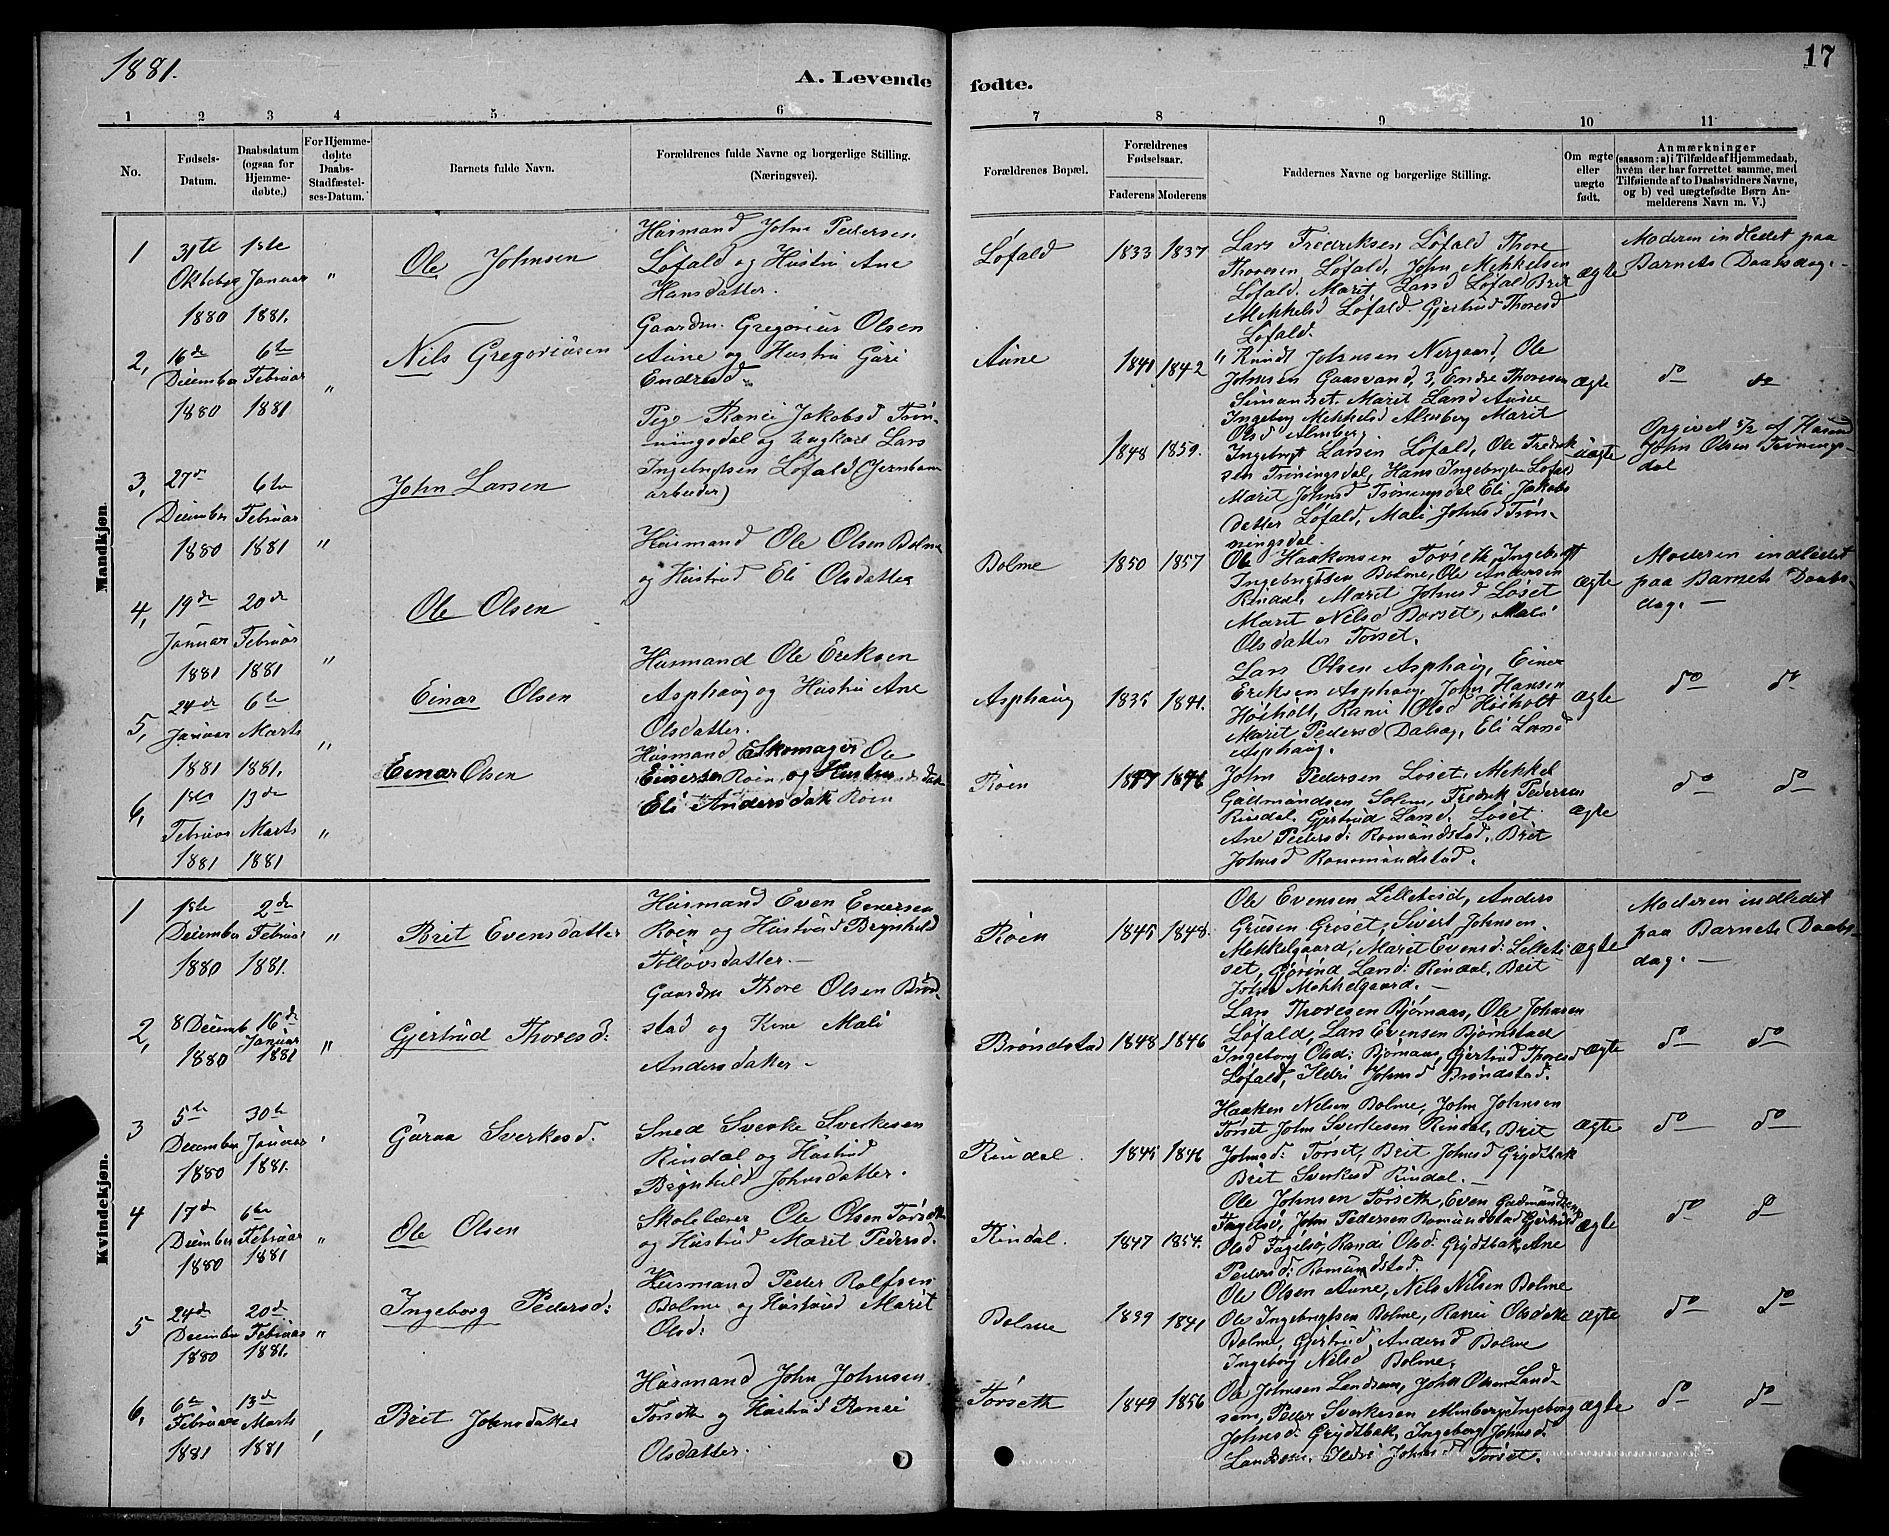 1881.
A. Levende fødte.
17
1 2 3 4 5 6 7 8 9 10 11
No.
Fødsels-
Datum.
Daabsdatum
(ogsaa for
Hjemme-
døbte.)
For Hjemme-
døbte
Daabs-
Stadfæstel-
ses-Datum.
Barnets fulde Navn.
Forældrenes fulde Navne og borgerlige Stilling.
(Næringsvei).
Forældrenes Bopæl.
Forældrenes
Fødselsaar.
Faderens Moderens
Faddernes Navne og borgerlige Stilling.
Om ægte
eller
uægte
født.
Anmærkninger
(saasom: a) i Tilfælde af Hjemmedaab,
hvem der har forrettet samme, med
Tilføiende af to Daabsvidners Navne,
og b) ved uægtefødte Børn An-
melderens Navn m. V.)
Mandkjøn.
1
31te
Oktober
1880
1ste
Januar
1881.
"
Ole Johnsen
Husmand John Pedersen
Løfald og Hustru Ane
Hansdatter.
Løfald
1833 1837
Lars Fredriksen Løfald Thore
Thoresen Løfald, John Mekkelsen
Løfald. Marit Larsd Løfald Brit
Mekkelsd Løfald. Gjertrud Thoresd
Løfald.
ægte
Moderen indledet paa
Barnets Daabsdag. —
2,
16de
December
1880
6te
Februar
1881
"
Nils Gregoriusen
Gaardm. Gregorius Olsen
Aune og Hustru Guri
Endresd.
Aune
1841 1842
Knudt Johnsen Nergaard, Ole
Johnsen Gaasvand, 3, Endre Thoresen
Simundset. Marit Larsd Aune
Ingeborg Mekkelsd Almberg Marit
Olsd Almberg.
ægte
do do
3,
27de
December
1880
6te
Februar
1881
"
John Larsen
Pige Ranei Jakobsd Trøn-
ningsdal og Ungkarl Lars
Ingebrigtsen Løfald (Jernbane
arbeider)
1848 1859.
Ingebrigt Larsen Løfald, Ole Fredrik
sen Trøningsdal, Hans Ingebrigtsen Løfald
Marit Johnsd Trøningsdal Eli Jakobs
datter Løfald, Mali Johnsd Trøn-
ningsdal.
uægte
Opgivet 5/2 af Husmd
John Olsen Trønings-
dal
4,
19de
Januar
1881
20de
Februar
1881
"
Ole Olsen
Husmand Ole Olsen Bolme
og Hustrud Eli Olsdatter
Bolme
1850 1857
Ole Haakensen Torseth, Ingebrigt
Ingebrigtsen Bolme, Ole Andersen
Rindal, Marit Johnsd Løset
Marit Nilsd Børset, Mali
Olsdatter Torset.
ægte
Moderen indledet
paa Barnets Daabs-
dag. —
5,
24de
Januar
1881
6te
Marts
1881.
"
Einar Olsen
Husmand Ole Eriksen
Asphaug og Hustru Ane
Olsdatter.
Asphaug
1835 1841.
Lars Olsen Asphaug, Einer
Eriksen Asphaug, John Hansen
Høiholt, Ranei Olsd Høiholt
Marit Pedersd Dalsæg, Eli Larsd
Asphaug.
ægte
do do
6,
1ste
Februar
1881
13de
Marts
1881
"
Einar Olsen
Husmand Skomager Ole
Einersen Røen og Hustru
Eli Andersdatr Røen
Røen
1847 1846
John Pedersen Løset, Mekkel
Gudmundsen Solem, Fredrik Pedersen
Rindal. Gjertrud Larsd. Løset
Ane Pedersd: Romundstad. Brit
Johnsd Rommundstad.
ægte
do do
Kvindekjøn.
1
1ste
December
1880
2de
Februar
1881.
"
Brit Evensdatter
Husmand Even Einersen
Røen og Hustrud Brynhild
Tollovsdatter. —
Røen
1845 1848.
Ole Evensen Lilletesd, Anders
Grusen Grøset, Sivert Johnsen
Mekkelgaard, Maret Evensd: Lillete-
set, Gjørind Larsd: Rindal, Brit
Johnsd Mekkelgaard. —
ægte
Moderen indledet
paa Barnets Daabs-
dag. —
2,
8 Decemb
1880
16de
Januar
1881
"
Gjertrud Thoresd:
Gaardm Thore Olsen Brønd-
stad og Kone Mali
Andersdatter —
Brøndstad
1848 1846
Lars Thoresen Bjørnaas, Ole Johnsen
Løfald, Lars Evensen Bjørnstad
Ingeborg Olsd: Bjørnaas, Gjertrud Thoresd
Løfald, Ildri Johnsd Brøndstad.
ægte
do do
3
5te
December
1880
30te
Januar
1881.
Guraa Sverkesd.
Sned Sverke Sverkesen
Rindal og Hustrud
Brynhild Johnsdatter.
Rindal.
1845 1846
Haaken Nilsen Bolme, John Johnsen
Torset John Sverkesen Rindal, Brit
Johnsd: Torset, Brit Johnsd Grydtbak
Brit Sverkesd Rindal. —
ægte
do do
4
17de
December
1880
6te
Februar
1881
"
Ole Olsen
Skolelærer Ole Olsen Torseth
og Hustrud Marit Pedersd.
Rindal.
1847 1854.
Ole Johnsen Torseth, Even Gudmundsen
Fagelsø, John Pedersen Romundstad Gjertrud
Olsd Fagelsø, Randi Olsd: Grydtbak, Ane
Pedersd: Romundstad.
ægte
do d
5
24de
December
1880
20de
Februar
1881.
"
Ingeborg Pedersd:
Husmand Peder Rolfsen
Bolme og Hustrud Marit
Olsd:
Bolme
1839 1841
Ole Olsen Aune, Nils Nilsen Bolme
Ole Ingebrigtsen Bolme, Ranei Olsdatr
Bolme, Gjertrud Andersd Bolme
Ingeborg Nilsd Bolme.
ægte
do do
6,
6te
Februar
1881
13de
Marts
1881
Brit Johnsdatter
Husmand John Johnsen
Torseth og Hustrud Ranei
Olsdatter.
Torseth
1849 1856
Ole Johnsen Landsem, John Olsen Land-
sem, Peder Sverkesen Almberg, Ingeborg
Johnsd: Grydtbak, Ingeborg Johnsd.
Landsem, Ildri Johnsd Torset.
ægte
do do